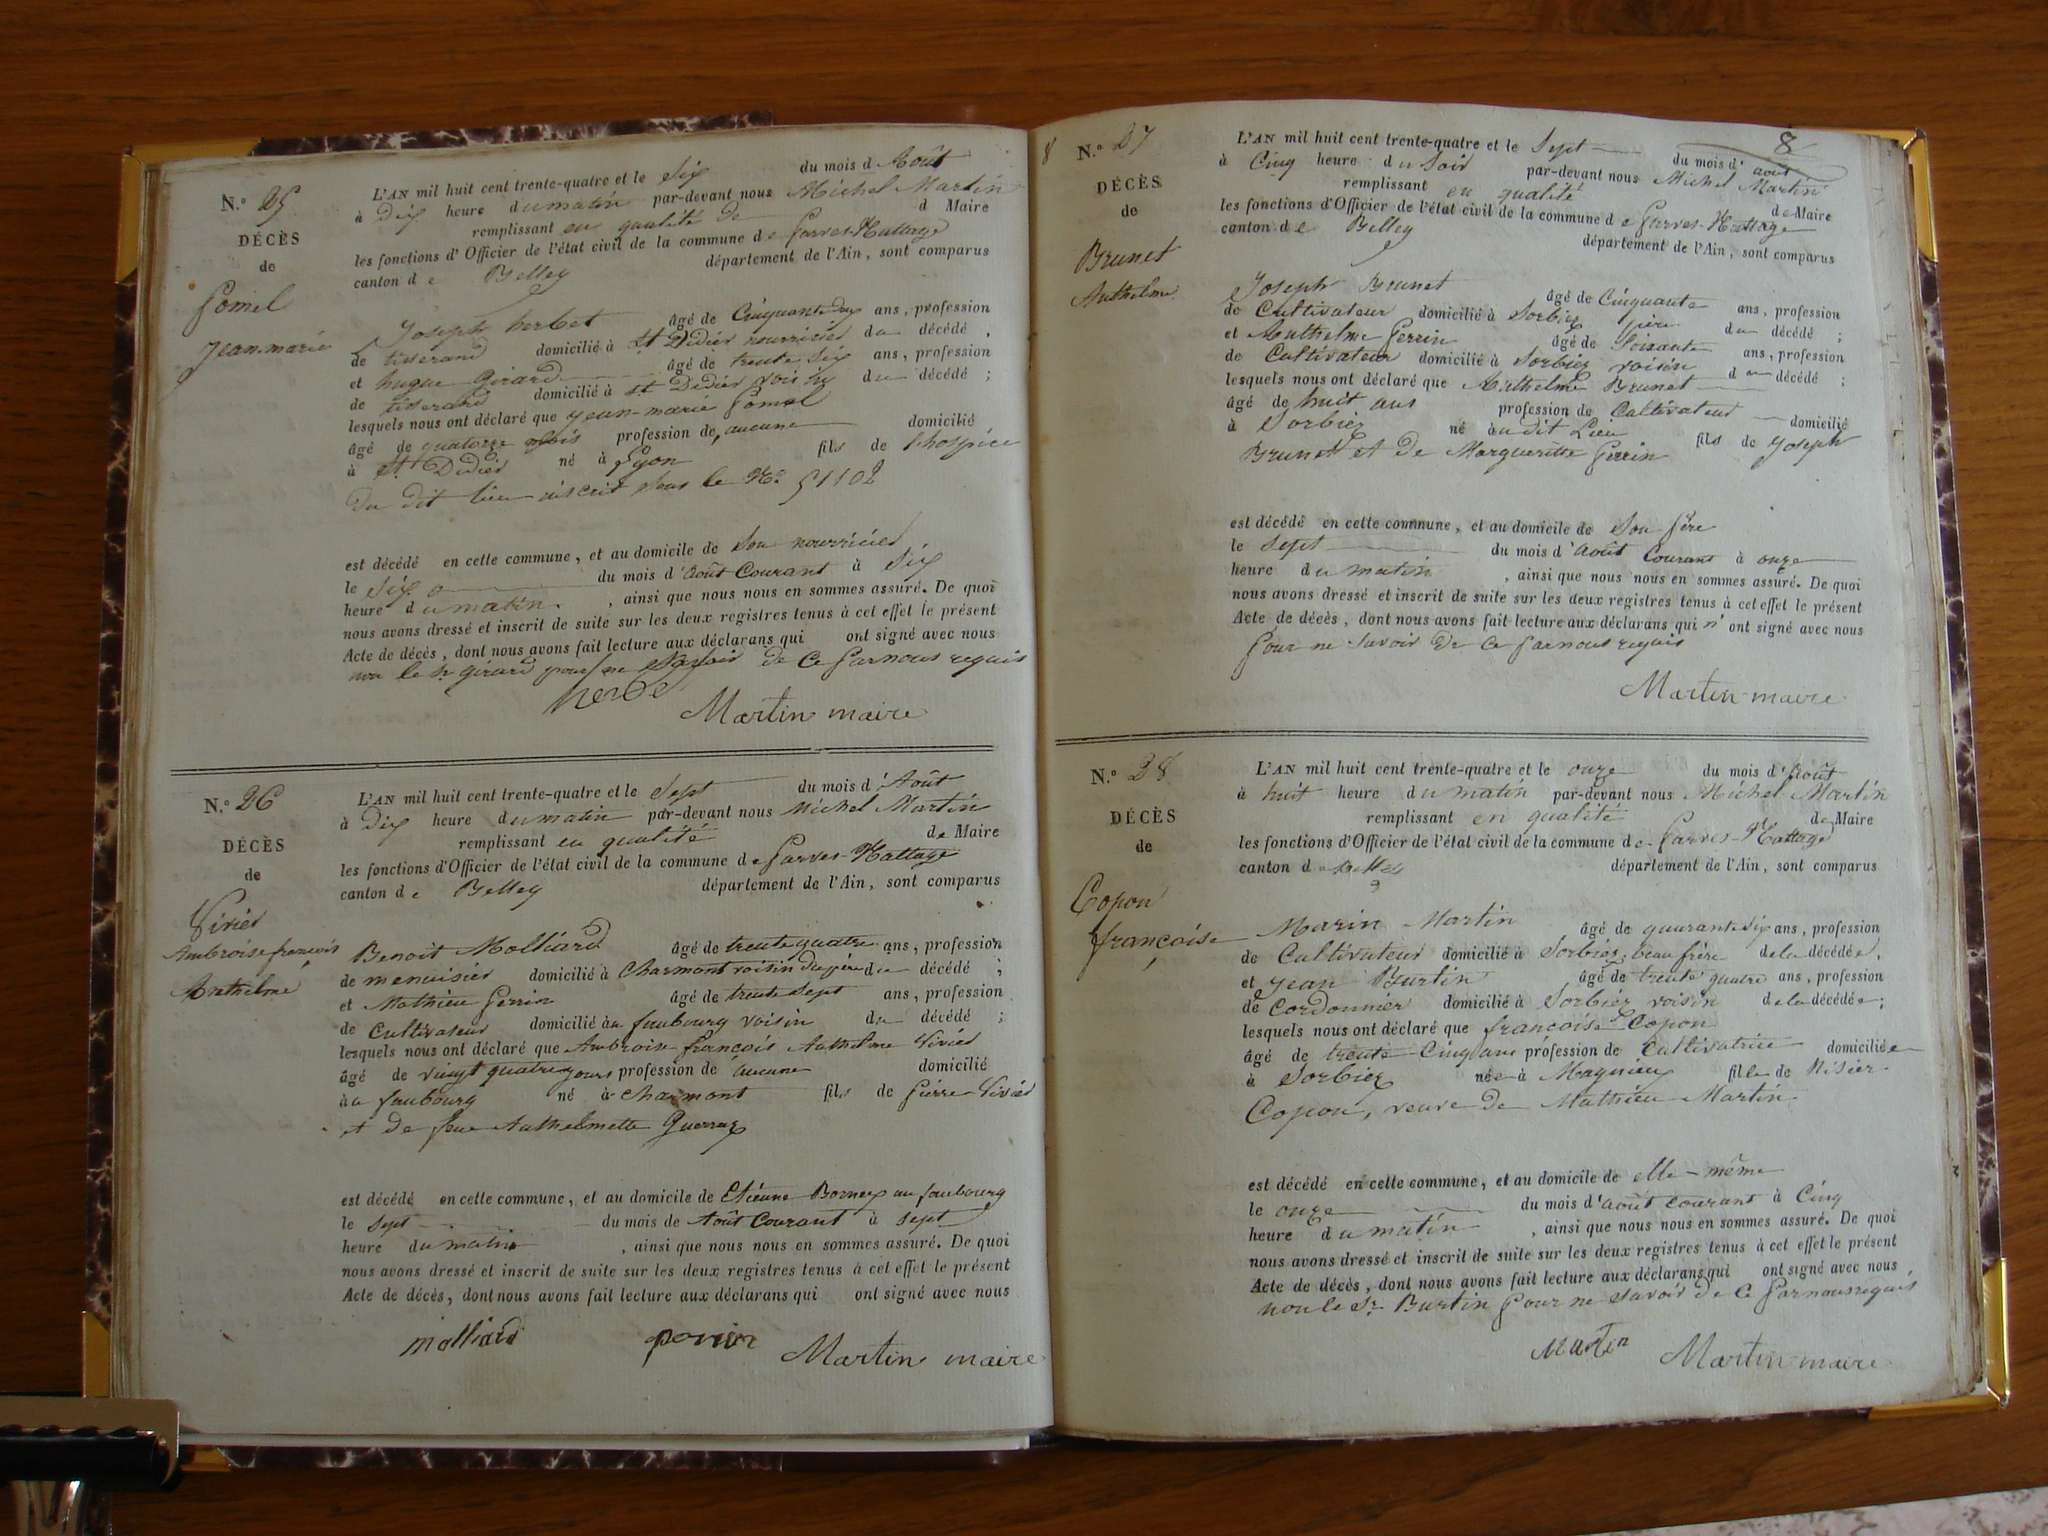 N.o 25
DÉCÈS
de
Pomel
Jean-marie
L'AN mil huit cent trente-quatre et le Six du mois d'Août
à Dix heure du matin par-devant nous Michel Martin
remplissant en qualité de d Maire
les fonctions d'Officier de l'état civil de la commune de Parves-Nattage
canton de Belley département de l'Ain, sont comparus
Joseph herbet âgé de Cinquante ans, profession
de tisserand domicilié à St Didier nourricier du décédé,
et hugue Girard âgé de trente Six ans, profession
de tisserand domicilié à St Didier voisin du décédé ;
lesquels nous ont déclaré que Jean-marie Pomel
âgé de quatorze mois profession de aucune domicilié
à St Didier né à Lyon fils de l'hospice
Du dit lieu inscrit sous le No 51102
est décédé en cette commune, et au domicile de Son nourricier
le Six du mois d'août Courant à Six
heure du matin. , ainsi que nous nous en sommes assuré. De quoi
nous avons dressé et inscrit de suite sur les deux registres tenus à cet effet le présent
Acte de décès, dont nous avons fait lecture aux déclarans qui ont signé avec nous
non le Sr girard pour ne Savoir de Ce par nous requis
Martin maire
N.o 26
DÉCÈS
de
Vivier
Ambroise françois
Anthelme
L'AN mil huit cent trente-quatre et le Sept du mois d'Août
à Dix heure du matin par-devant nous Michel Martin
remplissant en qualité de Maire
les fonctions d'Officier de l'état civil de la commune de Parves-Nattage
canton de Belley département de l'Ain, sont comparus
Benoit Molliard âgé de trente quatre ans, profession
de menuisier domicilié à Charmont voisin du père du décédé ;
et Mathieu Perrin âgé de trente Sept ans, profession
de Cultivateur domicilié àu faubourg voisin du décédé ;
lesquels nous ont déclaré que Ambroise françois Anthelme Vivier
âgé de vingt quatre jours profession de aucune domicilié
àu faubourg né à Charmont fils de Pierre Vivier
et de feue Anthelmette Guerraz
est décédé en cette commune, et au domicile de Etiénne Borney au faubourg
le Sept du mois de Août Courant à Sept
heure du matin , ainsi que nous nous en sommes assuré. De quoi
nous avons dressé et inscrit de suite sur les deux registres tenus à cet effet le présent
Acte de décès, dont nous avons fait lecture aux déclarans qui ont signé avec nous
molliard perrin Martin maire
8
8
N.o 27
DÉCÈS
de
Brunet
Anthelme
L'AN mil huit cent trente-quatre et le Sept du mois d'août
à Cinq heure du Soir par-devant nous Michel Martin
remplissant en qualité de Maire
les fonctions d'Officier de l'état civil de la commune de Parves-Nattage
canton de Belley département de l'Ain, sont comparus
Joseph Brunet âgé de Cinquante ans, profession
de Cultivateur domicilié à Sorbiez père du décédé ;
et Anthelme Perrin âgé de Soixante ans, profession
de Cultivateur domicilié à Sorbiez voisin du décédé ;
lesquels nous ont déclaré que Anthelme Brunet
âgé de huit ans profession de Cultivateur domicilié
à Sorbiez né àu dit Lieu fils de Joseph
Brunet et De Margueritte Perrin
est décédé en cette commune, et au domicile de Son Père
le Sept du mois d'août Courant à onze
heure du matin , ainsi que nous nous en sommes assuré. De quoi
nous avons dressé et inscrit de suite sur les deux registres tenus à cet effet le présent
Acte de décès, dont nous avons fait lecture aux déclarans qui n'ont signé avec nous
Pour ne Savoir De Ce par nous requis
Martin maire
N.o 28
DÉCÈS
de
Copon
françoise
L'AN mil huit cent trente-quatre et le onze du mois d'Août
à huit heure du matin par-devant nous Michel Martin
remplissant en qualité de Maire
les fonctions d'Officier de l'état civil de la commune de Parves-Nattage
canton de Belley département de l'Ain, sont comparus
Marin Martin âgé de quarante Six ans, profession
de Cultivateur domicilié à Sorbiez, beau frère de la décédée,
et Jean Burtin âgé de trente quatre ans, profession
de Cordonnier domicilié à Sorbiez voisin de la décédée ;
lesquels nous ont déclaré que françoise Copon
âgé de trente Cinq ans profession de Cultivatrice domiciliée
à Sorbiez née à Magnieu fille de Nisier
Copon, veuve de Mathieu Martin
est décédé en cette commune, et au domicile de elle-même
le onze du mois d'août courant à Cinq
heure du matin , ainsi que nous nous en sommes assuré. De quoi
nous avons dressé et inscrit de suite sur les deux registres tenus à cet effet le présent
Acte de décès, dont nous avons fait lecture aux déclarans qui ont signé avec nous
non le Sr Burtin Pour ne Savoir de Ce par nous requis
Martin Martin maire